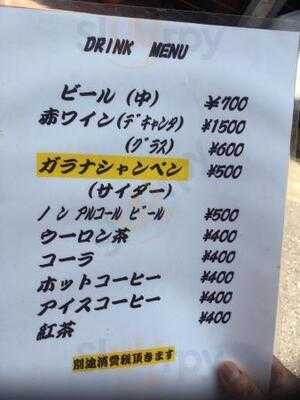 DRINK MENU
ビール (中) ¥700
赤ワイン(デキャンタ) ¥1500
(グラス) ¥600
ガラナシャンペン ¥500
(サイダー)
ノンアルコールビール ¥500
ウーロン茶 ¥400
コーラ ¥400
ホットコーヒー ¥400
アイスコーヒー ¥400
紅茶 ¥400
別途消費税頂きます